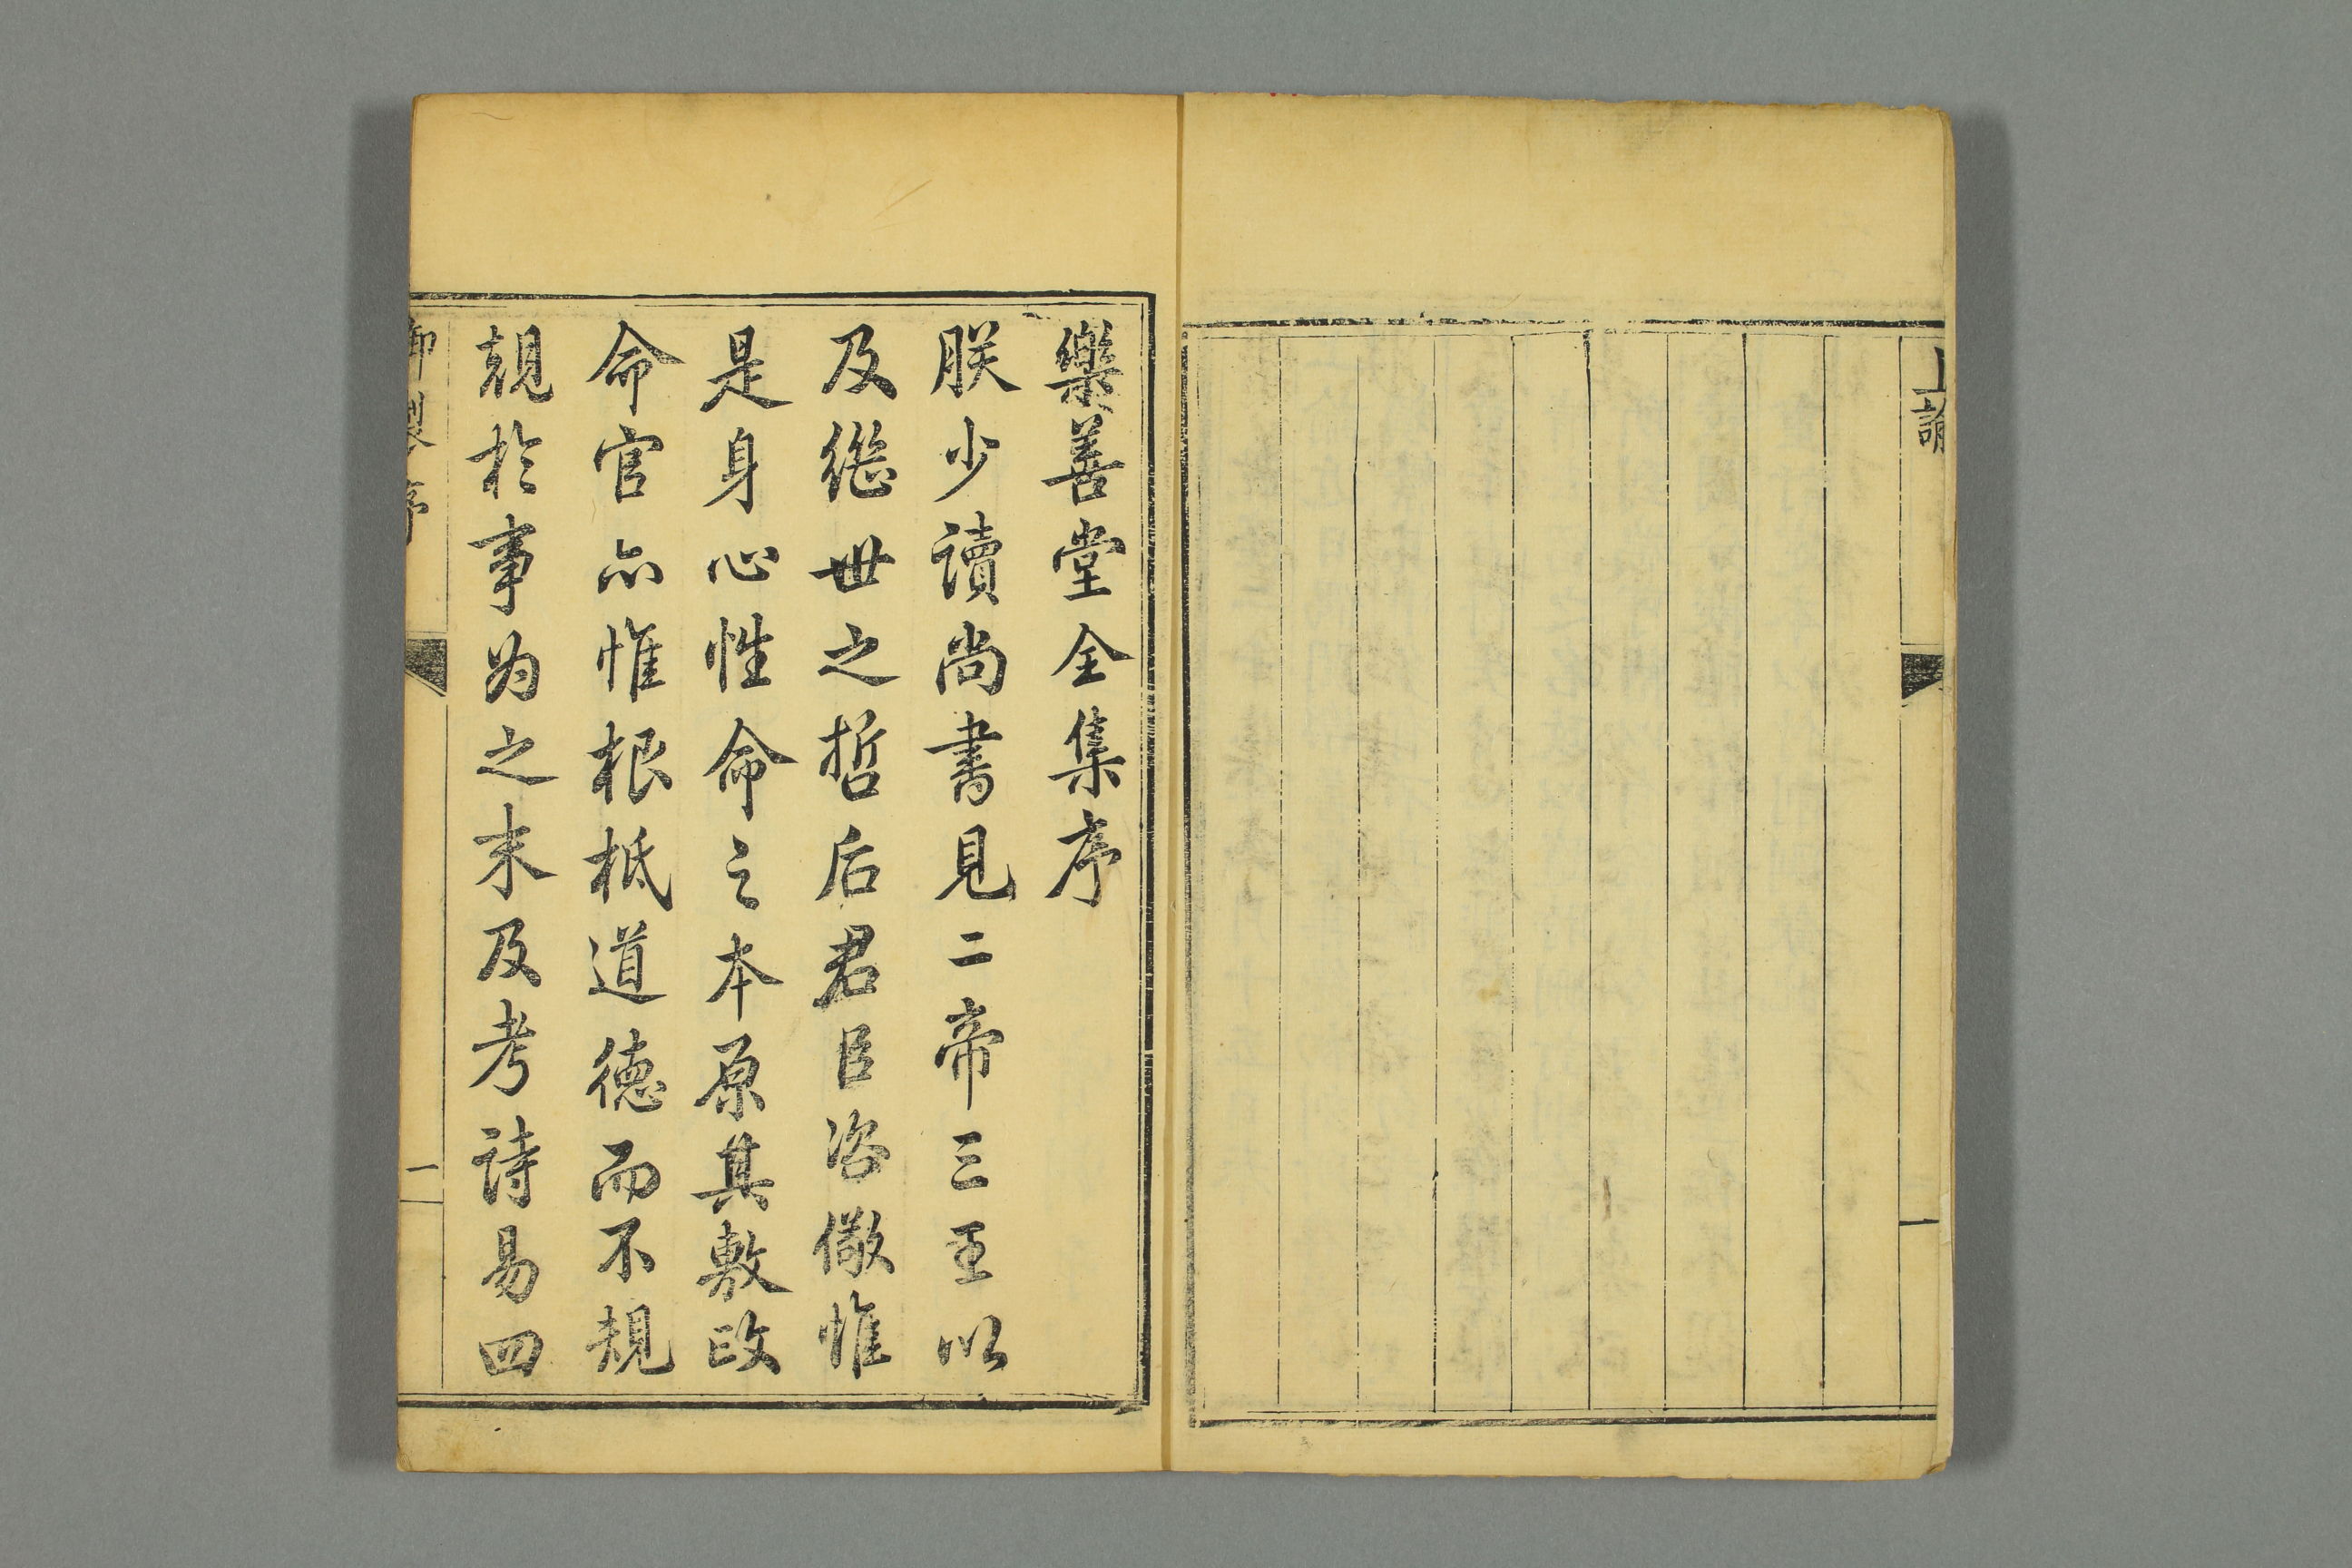 上諭
一
樂善堂全集序
朕少讀尚書見二帝三王以
及繼世之哲后君臣咨儆惟
是身心性命之本原其敷政
命官亦惟根柢道德而不規
規於事為之末及考詩易四
御製序
一